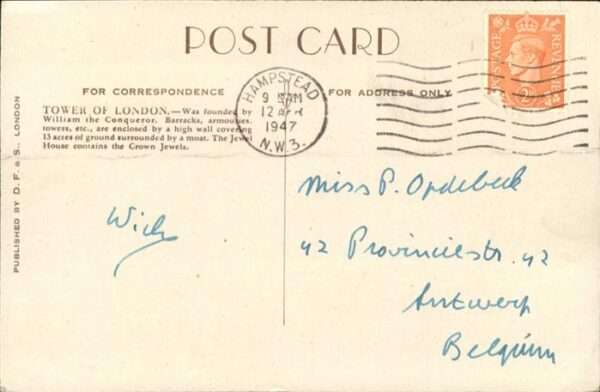 POST CARD
FOR CORRESPONDENCE
FOR ADDRESS ONLY
TOWER OF LONDON.—Was founded by
William the Conqueror. Barracks, armouries,
towers, etc., are enclosed by a high wall covering
13 acres of ground surrounded by a moat. The Jewel
House contains the Crown Jewels.
PUBLISHED BY D. F. & S., LONDON
HAMPSTEAD
9 AM
12 APR
1947
N.W.3.
POSTAGE
REVENUE
Miss P. Opdebeek
42 Provinciestr. 42
Antwerp
Belgium